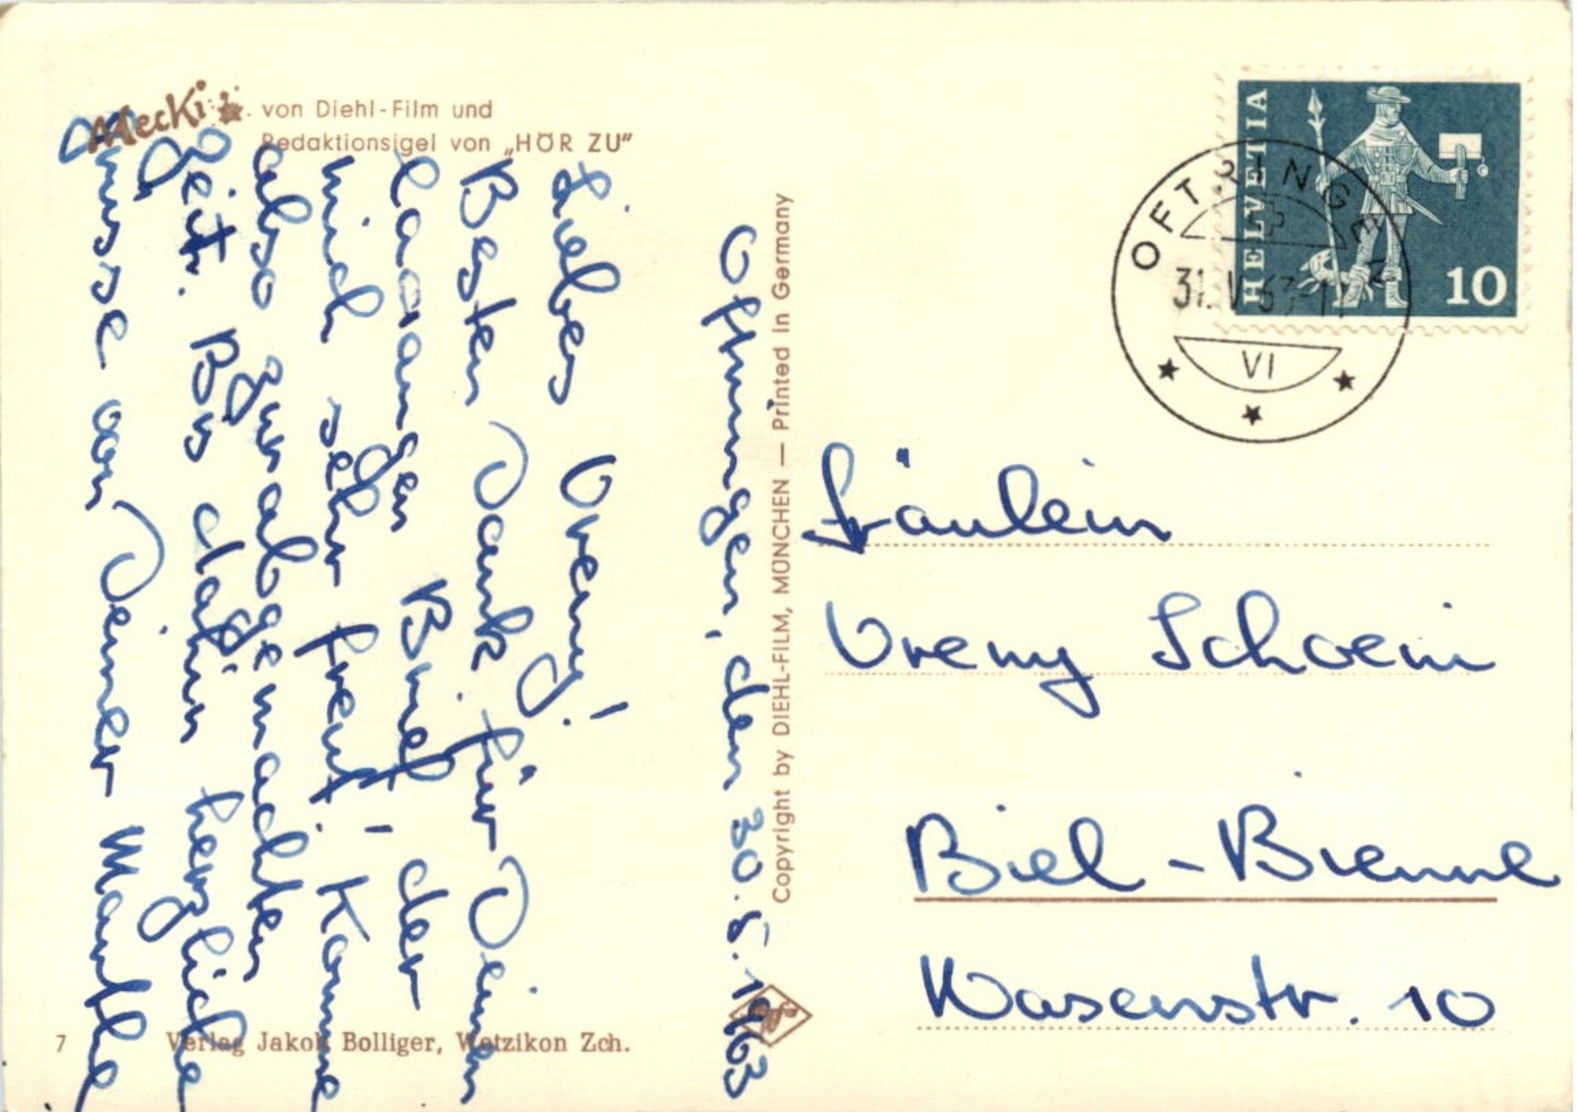 Mecki von Diehl-Film und
Redaktionsigel von „HÖR ZU"
Oftringen, den 30.5.1963
Liebes Vreny!
Besten Dank für Deinen
laaangen Brief, der
mich sehr freut! Komme
also zur abgemachten
Zeit. Bis dahin herzliche
Grüsse von Deiner Marthe
Copyright by DIEHL-FILM, MÜNCHEN — Printed in Germany
7 Verlag Jakob Bolliger, Wetzikon Zch.
HELVETIA
10
OFTRINGEN
31.V.63-
VI
Fräulein
Vreny Schoeni
Biel-Bienne
Wasenstr. 10